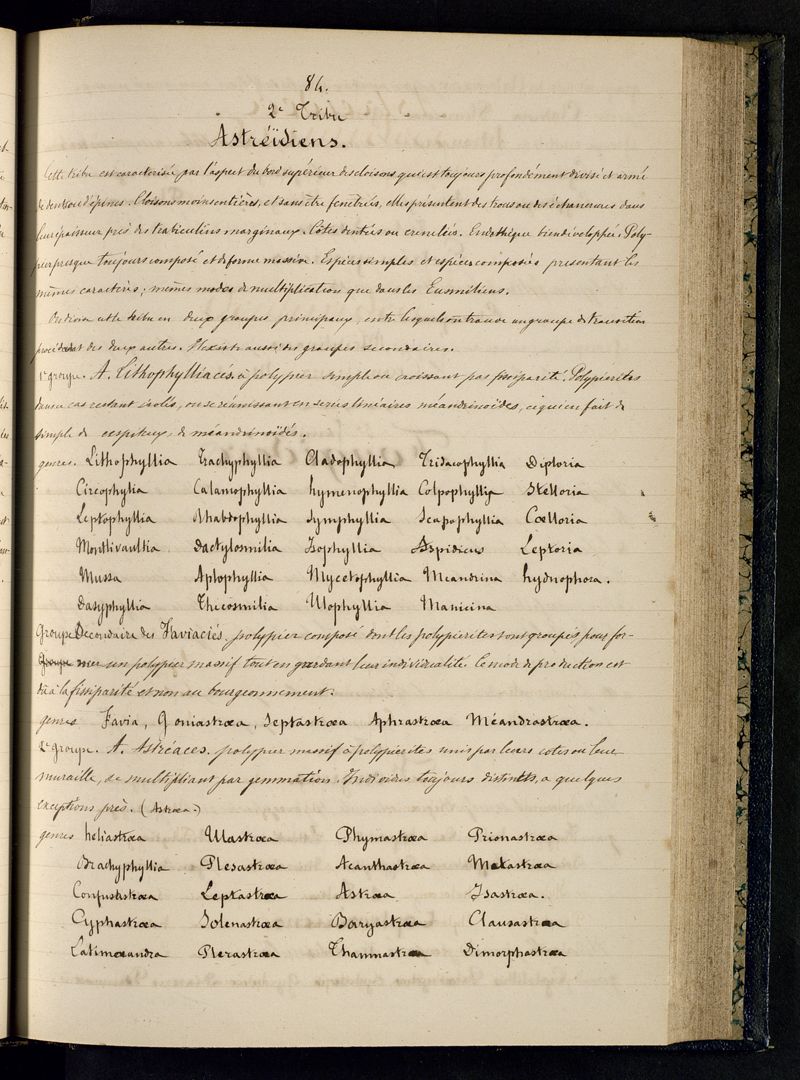 84.
2e Tribu
Astréidiens.
Cette tribu est caractérisée, par l'aspect du bord supérieur des cloisons, qui est toujours profondément divisé et armé
de dents ou d'épines. Cloisons moins entières, et sans être fenêtrées, elles présentent des trous ou des échancrures dans
leur épaisseur près des trabiculins marginaux. Côtes dentées ou crenelées. Endothèque bien développée. Poly-
pier presque toujours composé et de forme massive. Espèces simples et espèces composées présentant les
mêmes caractères; mêmes modes de multiplication que dans les Eusmiliens.
On divise cette tribu en deux groupes principaux, entre lesquels on trouve un groupe de transition
procédant des deux autres. Il existe aussi des groupes secondaires.
1er groupe. A. Lithophylliacés. à polypier simple ou croissant par fissiparité. Polypiérites
dans ce cas restant isolés, ou se réunissant en séries linéaires méandrinoïdes, ce qui en fait de
simples de cespiteux, de méandrinoïdes.
genres. Lithophyllia Trachyphyllia Cladophyllia Tridacophyllia Diploria
Circophylia Calamophyllia hymenophyllia Colpophyllia Stelloria
Leptophyllia Rhabdophyllia Symphyllia Scapophyllia Cœlloria
Montlivaultia Dactylosmilia Isophyllia Aspidicus Leptoria
Mussa Aplophyllia Mycetophyllia Meandrina hydnophora.
Dasyphyllia Thecosmilia Ulophyllia Manicina
Groupe Secondaire des Faviacés. polypier composé dont les polypiérites sont groupés pour for-
mer un polypier massif tout en gardant leur individualité. le mode de production est
dû à la fissiparité et non au bourgeonnement.
genres Favia, Goniastræa, Septastræa Aphrastræa Méandrastræa.
2e groupe. A. Astréacés. polypier massif à polypiérites unis par leurs côtes ou leur
muraille, se multipliant par gemmation. Individus toujours distincts, à quelques
exceptions près. (Astræa.)
genres heliastræa Ulastræa Phymastræa Prionastræa
Brachyphyllia Plesastræa Acanthastræa Metastræa
Confusastræa Leptastræa Astræa Isastræa.
Cyphastræa Solenastræa Baryastræa Clausastræa
Latimæandra Plerastræa Thamnastræa Dimorphastræa